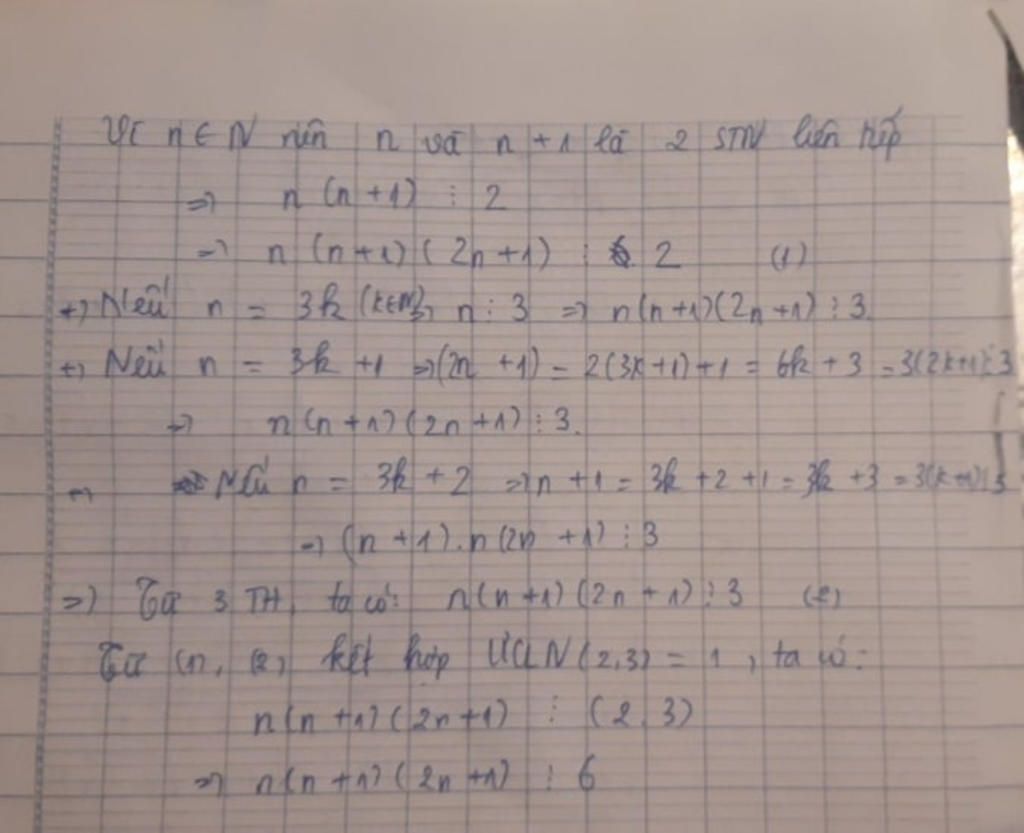 Vì n ∈ N nên n và n + 1 là 2 STN liên tiếp
=> n (n+1) ⋮ 2
=> n (n+1) (2n+1) ⋮ 2 (1)
+) Nếu n = 3k (k∈N), n ⋮ 3 => n(n+1)(2n+1) ⋮ 3.
+) Nếu n = 3k +1 =>(2n +1) = 2(3k+1)+1 = 6k + 3 = 3(2k+1) ⋮ 3
=> n (n+1) (2n+1) ⋮ 3.
Nếu n = 3k + 2 => n + 1 = 3k + 2 + 1 = 3k + 3 = 3(k+1) ⋮ 3
=> (n+1).n (2n +1) ⋮ 3
=> Từ 3 TH, ta có: n(n+1) (2n+1) ⋮ 3 (2)
Từ (1), (2), kết hợp ƯCLN (2,3) = 1, ta có:
n(n+1)(2n+1) ⋮ (2.3)
=> n(n+1)(2n+1) ⋮ 6